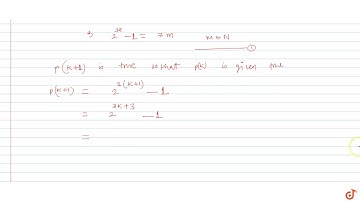 ⇒ 2^{3k} - 1 = 7m m ∈ N ①
P(k+1) is true so that P(k) is given true
P(k+1) = 2^{3(k+1)} - 1
= 2^{3k+3} - 1
=